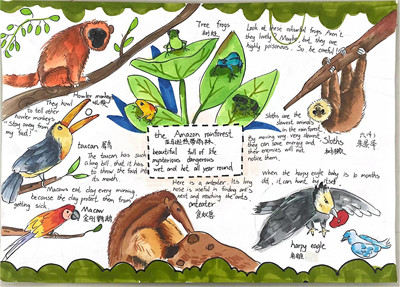 Tree frogs
树蛙
Look at these colourful frogs. Aren't
they lovely? Maybe, but they are
highly poisonous. So be careful!
Howler monkeys
吼猴
They howl
to tell other
howler monkeys
"Stay away from
my food!"
the Amazon rainforest
亚马逊热带雨林
beautiful full of life
mysterious dangerous
wet and hot all year round
Sloths are the
slowest animals
in the rainforest.
By moving very slowly,
they can save energy and
their enemies will not
notice them.
Sloths
树懒
六(4)
toucan
The toucan has such
a long bill that it has
to throw the food into
its mouth.
Macaws eat clay every morning,
because the clay protect them from
getting sick.
Macaw
金刚鹦鹉
Here is a anteater. Its long
nose is useful in finding ants
nest and reaching the ants
anteater
食蚁兽
When the harpy eagle baby is 6 months
old, it can hunt by itself.
harpy eagle
角雕